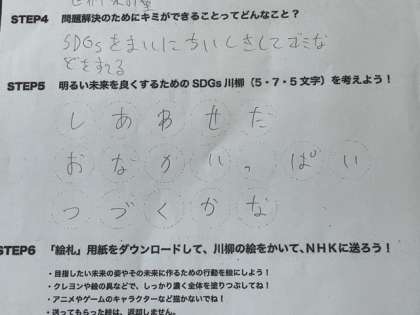 STEP4 問題解決のためにキミができることってどんなこと？
SDGsをまいにちいしきしてゴミな
どをすてる
STEP5 明るい未来を良くするための SDGs 川柳（5・7・5 文字）を考えよう！
しあわせだ
おなかいっぱい
つづくかな
STEP6 「絵札」用紙をダウンロードして、川柳の絵をかいて、NHKに送ろう！
・目指したい未来の姿やその未来に作るための行動を絵にしよう！
・クレヨンや絵の具などで、しっかり濃く全体を塗りつぶしてね！
・アニメやゲームのキャラクターなど描かないでね！
・送ってもらった絵は、返却しません。